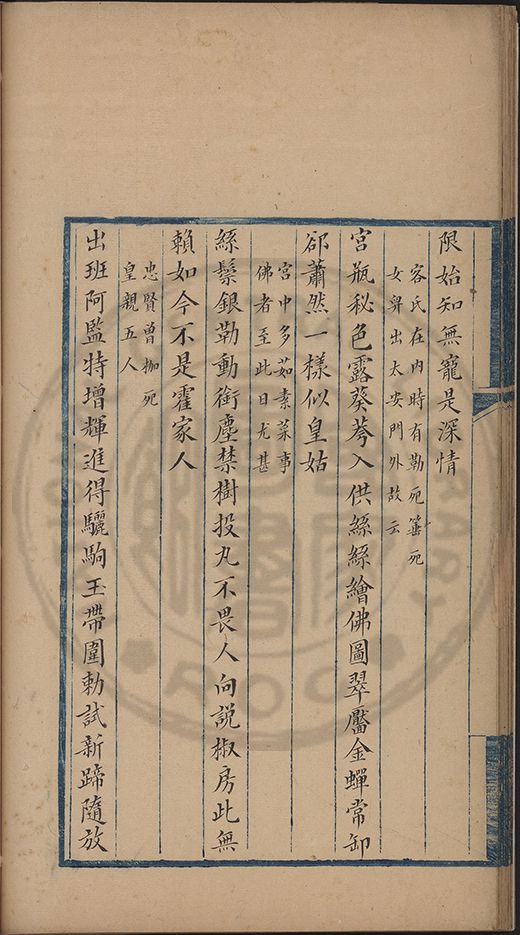 限始知無寵是深情
容氏在内時有勒死箠死
女舁出太安門外故云
宮瓶秘色露葵芩入供絲絲繪佛圖翠靨金蟬常卸
郤蕭然一樣似皇姑
宮中多茹素菜事
佛者至此日尤甚
絲鬃銀勒動銜塵禁樹投丸不畏人向説椒房此無
賴如今不是霍家人
忠賢曾枷死
皇親五人
出班阿監特增輝進得驪駒玉帶圍勅試新蹄隨放